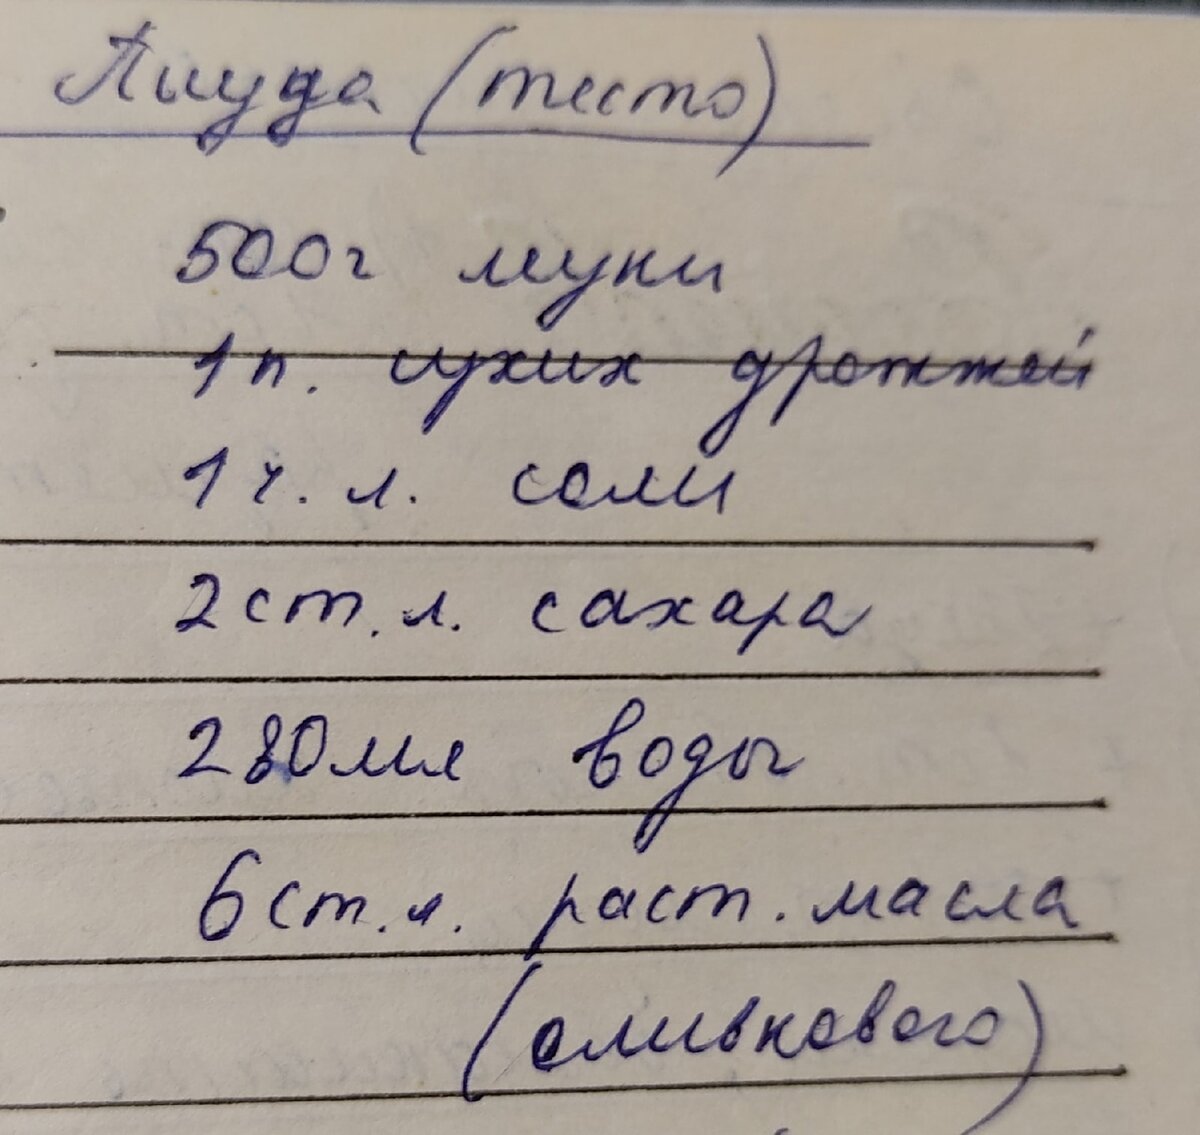 Пицца (тесто)
500г муки
1 п. сухих дрожжей
1 ч. л. соли
2 ст. л. сахара
280 мл воды
6 ст. л. раст. масла
(оливкового)